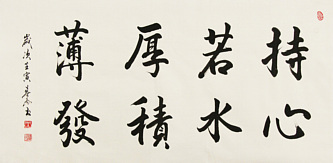 持心
若水
厚積
薄發
歲次壬寅